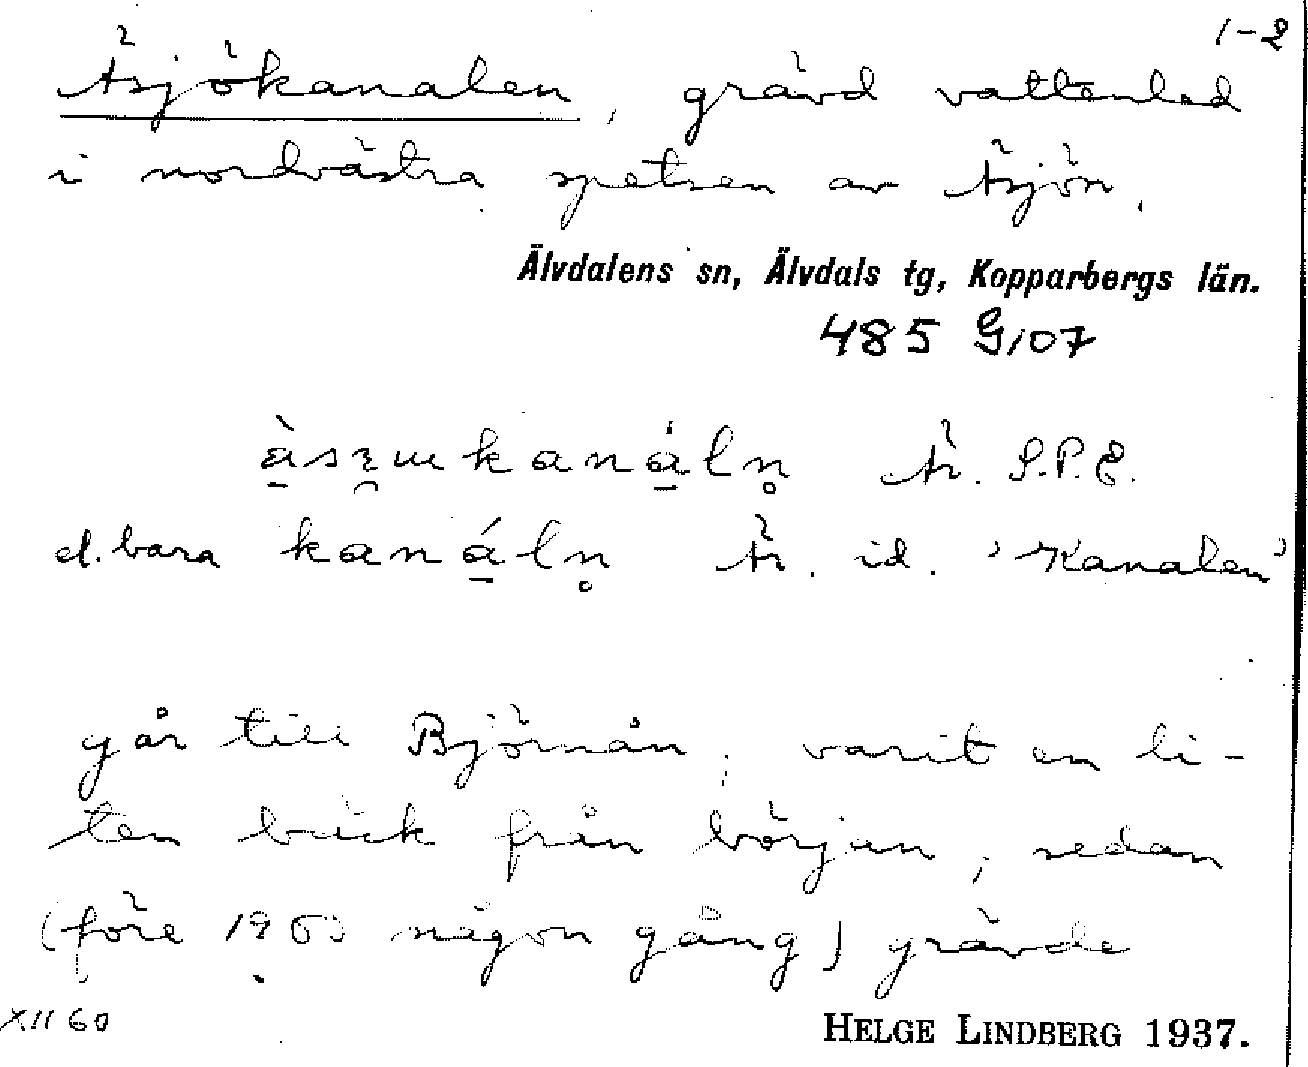 1-2
Äsjökanalen, grävd vattenled
i nordvästra spetsen av Äsjön.
Älvdalens sn, Älvdals tg, Kopparbergs län.
485 G107
kanáln̥ Är. S.P.E.
el. bara kanáln̥ Är. id. 'Kanalen'
går till Björnån; varit en li-
ten bäck från början, sedan
(före 1900 någon gång) grävde
XII 60
HELGE LINDBERG 1937.